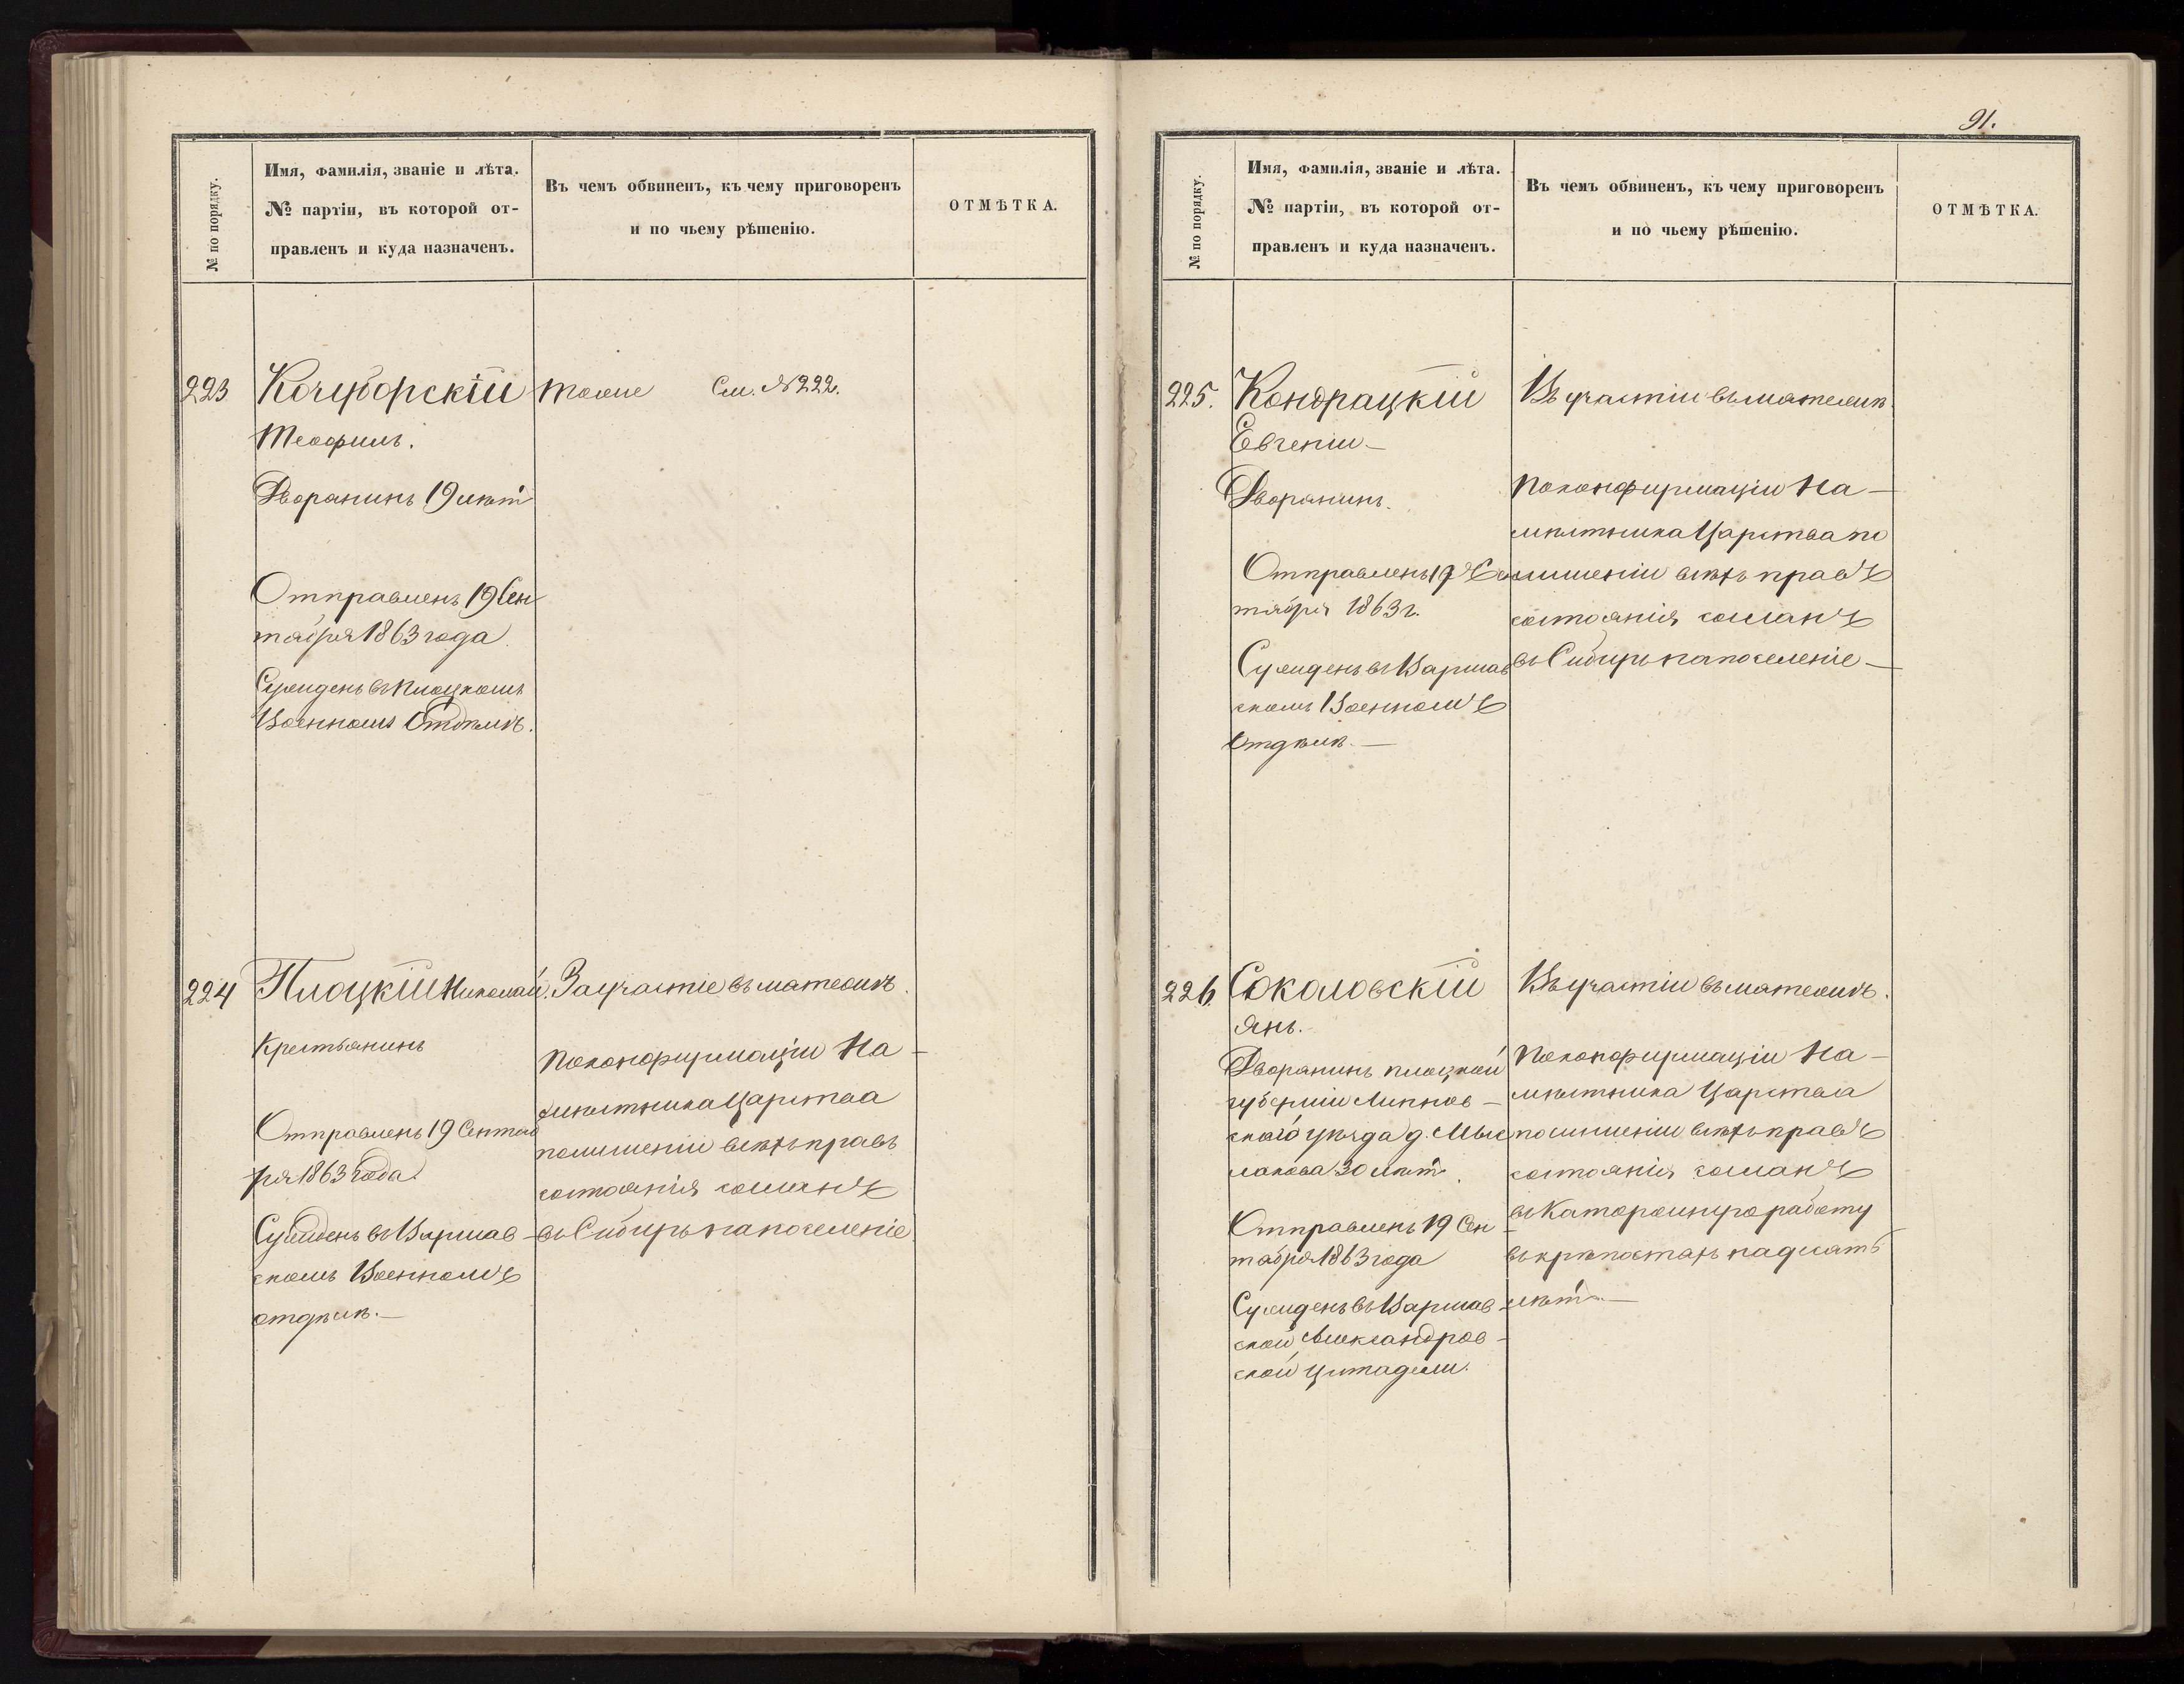 № по порядку.
Имя, фамилія, званіе и лѣта.
№ партіи, въ которой от-
правленъ и куда назначенъ.
Въ чемъ обвиненъ, къ чему приговоренъ
и по чьему рѣшенію.
ОТМѢТКА.
223
Кочуборскій
Теофиль.
Дворянинъ 19 лѣтъ
Отправленъ 19 Сен
тября 1863 года.
Сужденъ въ Плоцкомъ
Военномъ Отдѣлѣ.
Тоже См. №222.
224
Плоцкій Николай.
Крестьянинъ
Отправленъ 19 Сентяб
ря 1863 года.
Сужденъ въ Варшав-
скомъ Военномъ
отдѣлѣ.—
За участіе въ мятежѣ.
По конфирмаціи На-
мѣстника Царства
по лишеніи всѣхъ правъ
состоянія сосланъ
въ Сибирь на поселеніе.
91.
№ по порядку.
Имя, фамилія, званіе и лѣта.
№ партіи, въ которой от-
правленъ и куда назначенъ.
Въ чемъ обвиненъ, къ чему приговоренъ
и по чьему рѣшенію.
ОТМѢТКА.
225.
Кондрацкій
Евгеній—
Дворянинъ.
Отправленъ 19 Се
нтября 1863 г.
Сужденъ въ Варшав
скомъ Военномъ
Отдѣлѣ.—
Въ участіи въ мятежѣ.
По конфирмаціи На—
мѣстника Царства по
лишеніи всѣхъ правъ
состоянія сосланъ
въ Сибирь на поселеніе—
226.
Соколовскій
Янъ.
Дворянинъ Плоцкой
губерніи Липнов—
скаго уѣзда д.
лакова 30 лѣтъ.
Отправленъ 19 Сен-
тября 1863 года
Сужденъ въ Варшав-
ской Александров-
ской Цитадели.
Въ участіи въ мятежѣ.
По конфирмаціи На—
мѣстника Царства
по лишеніи всѣхъ правъ
состоянія сосланъ
въ Каторжную работу
въ крѣпостяхъ на десять
лѣтъ.—